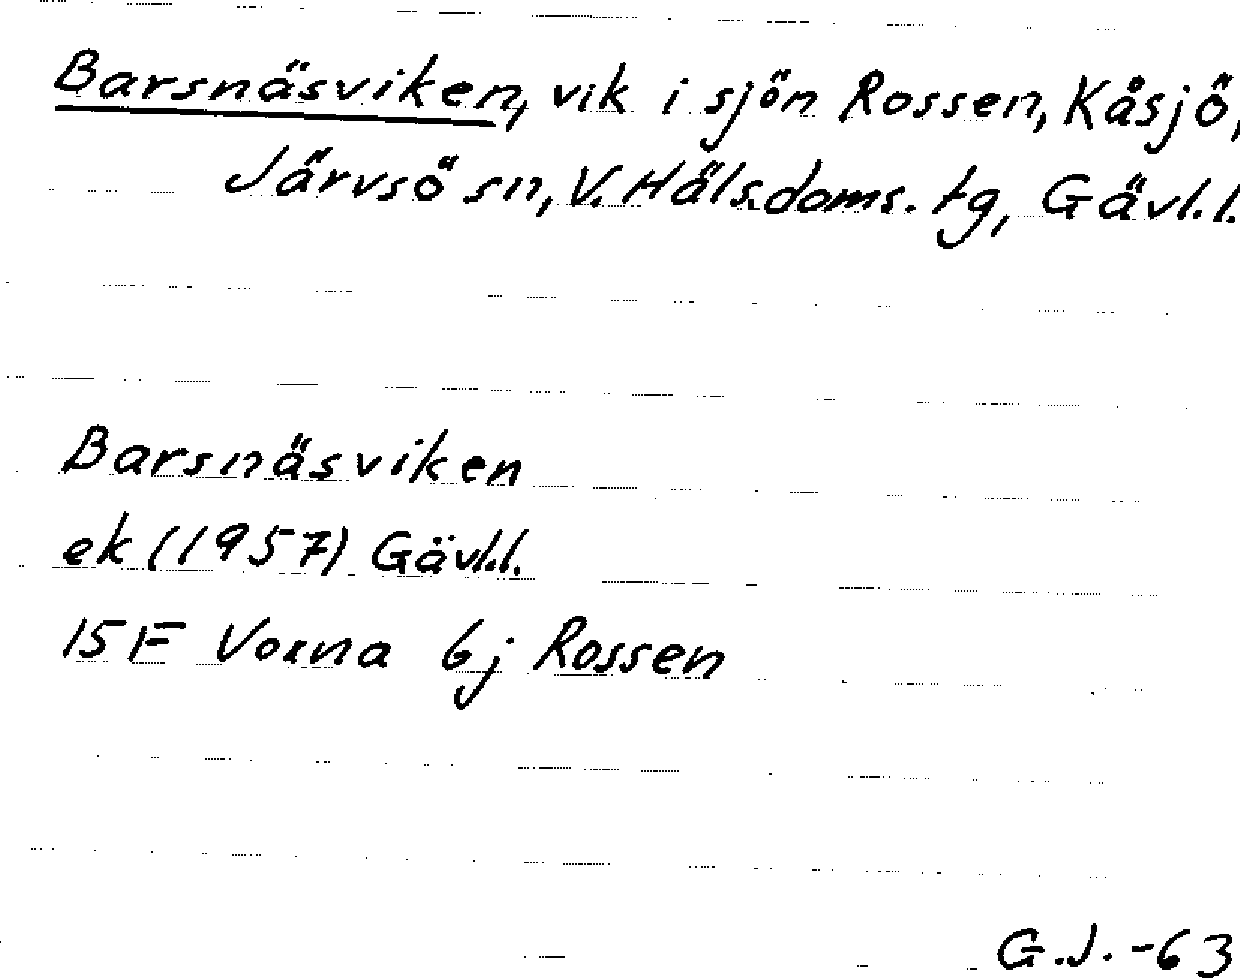 Barsnäsviken, vik i sjön Rossen, Kåsjö,
Järvsö sn, V. Häls. doms. tg, Gävl. l.
Barsnäsviken
ek (1957) Gävl.l.
15 F Voxna 6j Rossen
G.J. -63